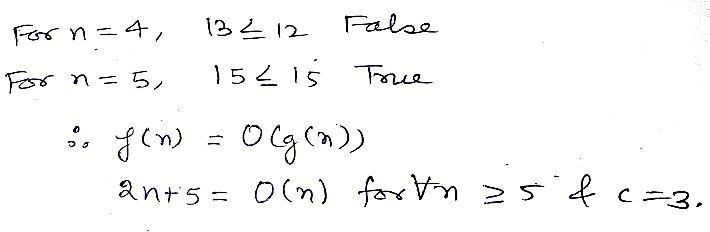 For n = 4, 13 ≤ 12 False
For n = 5, 15 ≤ 15 True
∴ f(n) = O(g(n))
2n+5 = O(n) for ∀n ≥ 5 & c = 3.